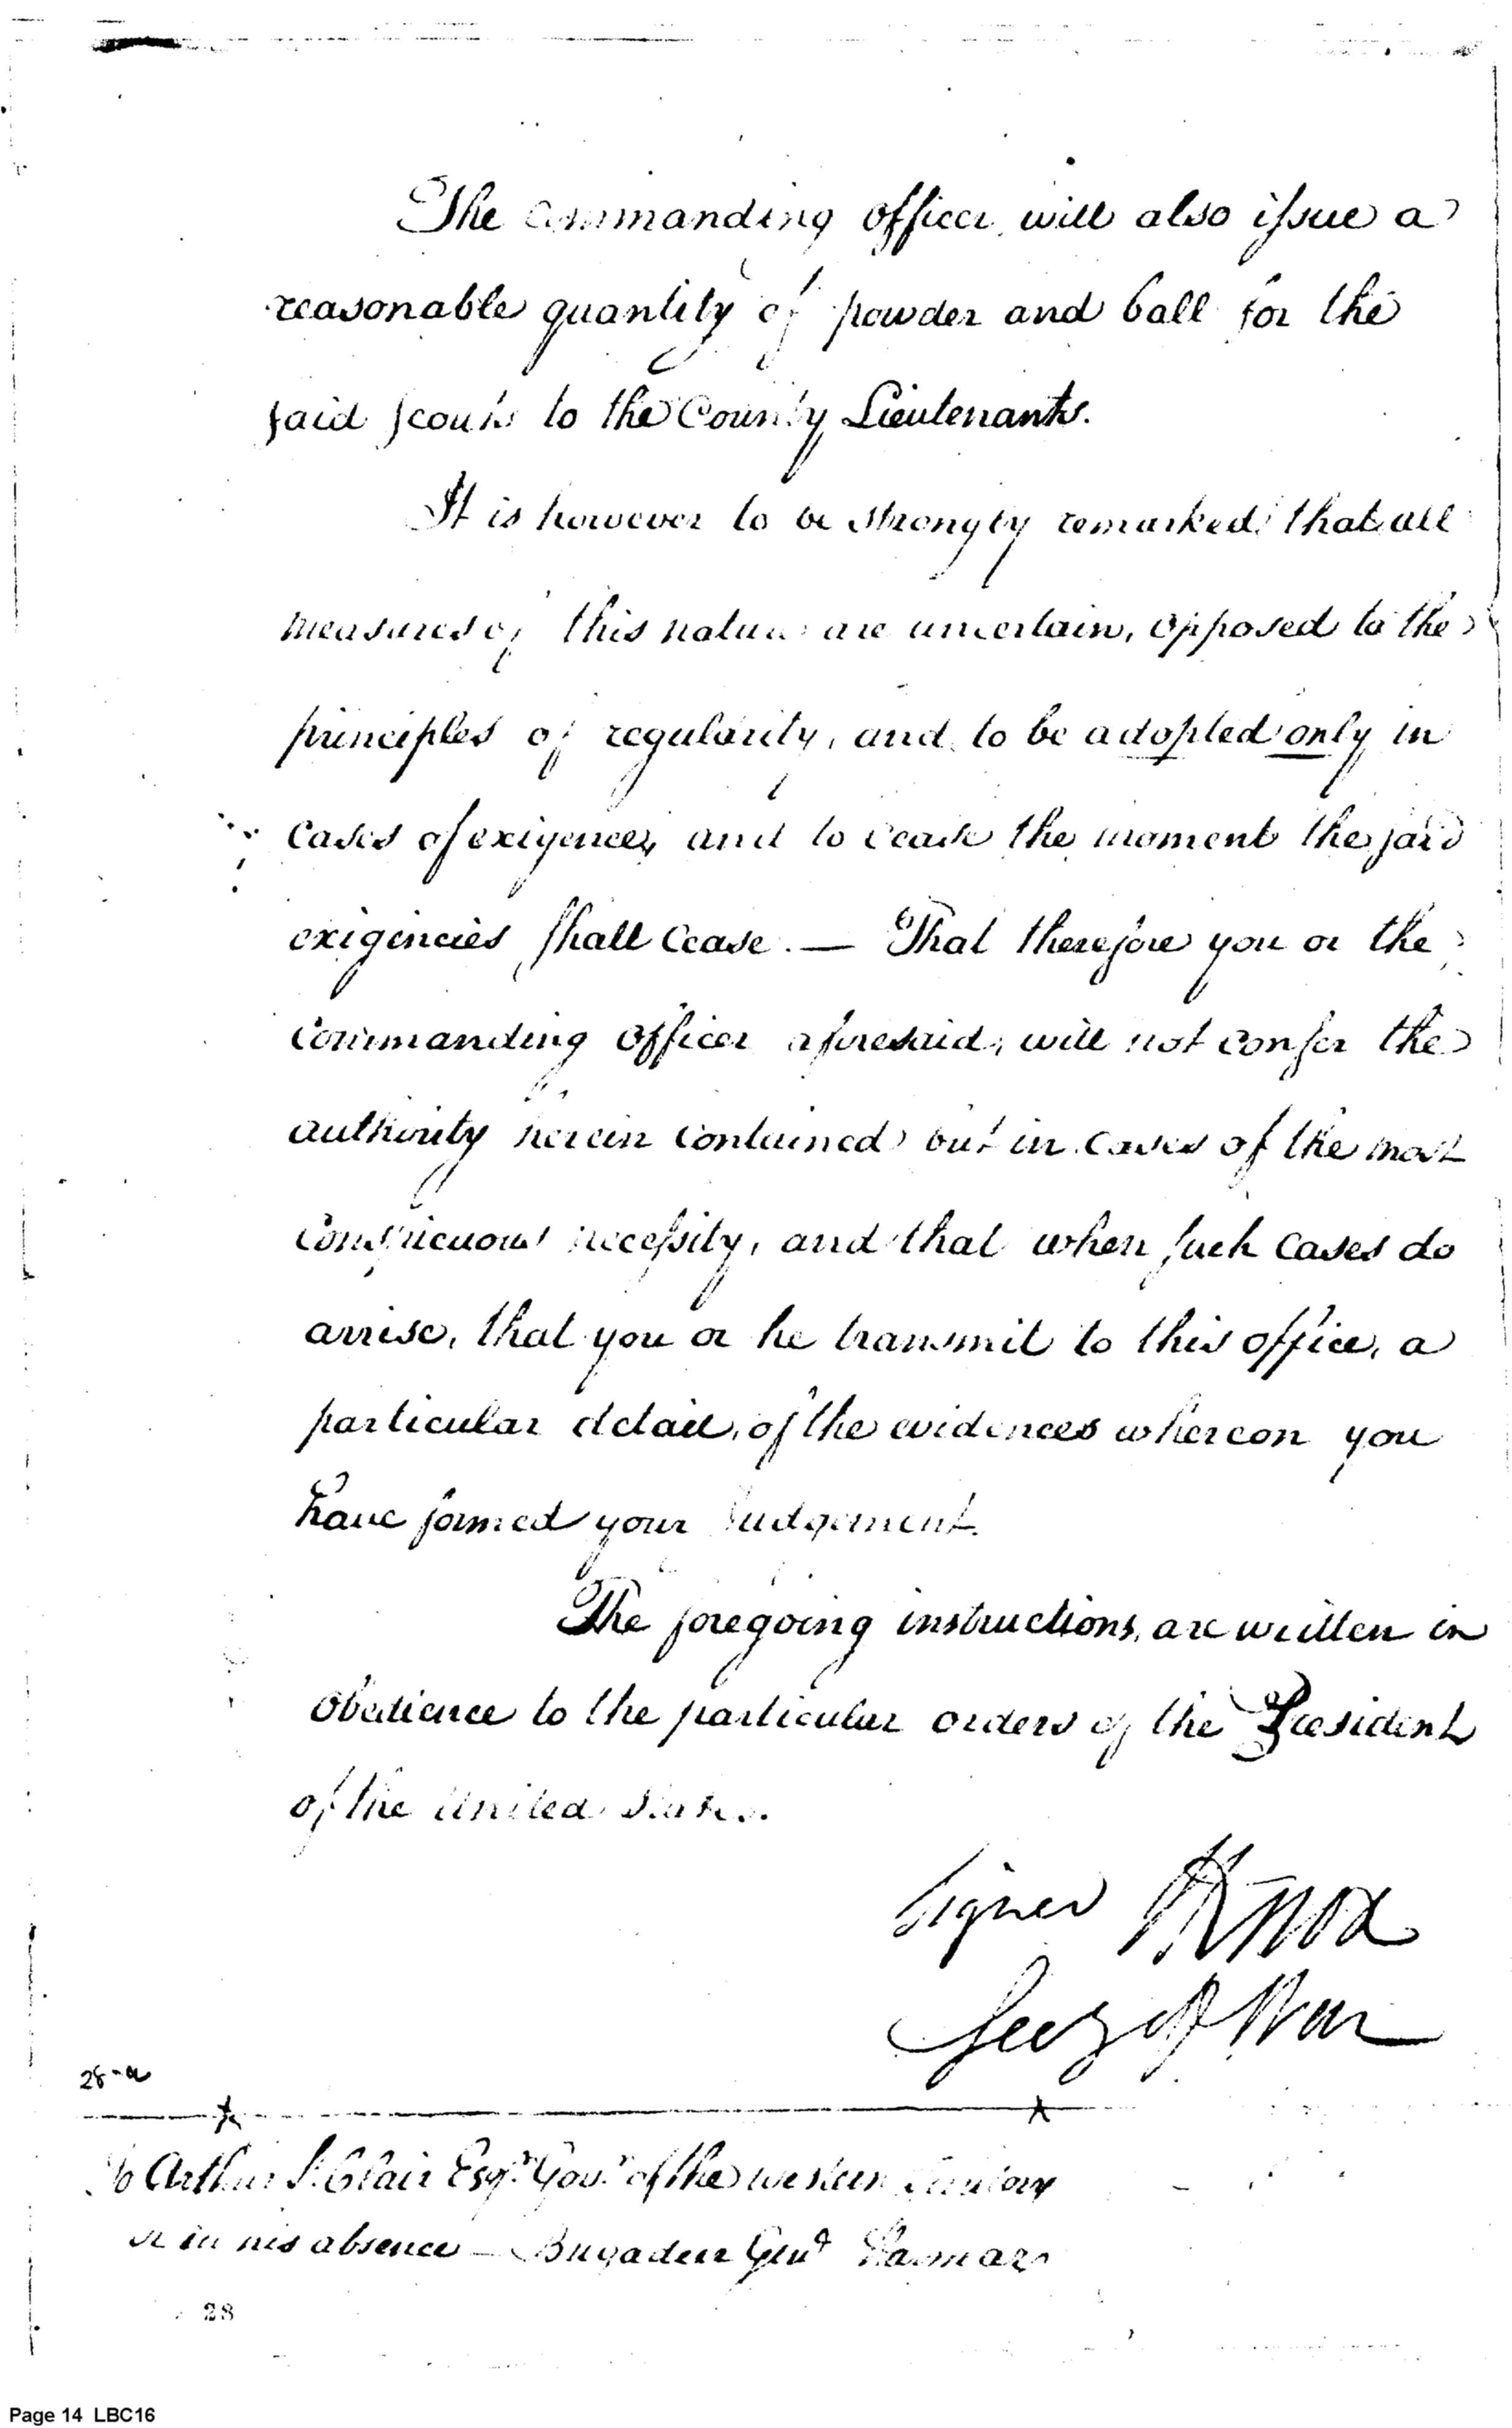 The commanding officer will also issue a
reasonable quantity of powder and ball for the
said scouts to the County Lieutenants.
It is however to be strongly remarked that all
measures of this nature are uncertain, opposed to the
principles of regularity, and to be adopted only in
Cases of exigence, and to cease the moment the said
exigencies shall Cease. — That therefore you or the
Commanding officer aforesaid, will not confer the
authority herein contained but in cases of the most
Conspicuous necessity, and that when such Cases do
arrise, that you or he transmit to this office, a
particular detail, of the evidences whereon you
have formed your Judgement.
The foregoing instructions, are written in
Obedience to the particular orders of the President
of the United States.
Signed HKnox
Secy of War
28-a
To Arthur St Clair Esqr Govr of the western Territory
or in his absence — Brigadier Genl Harmar
28
Page 14 LBC16